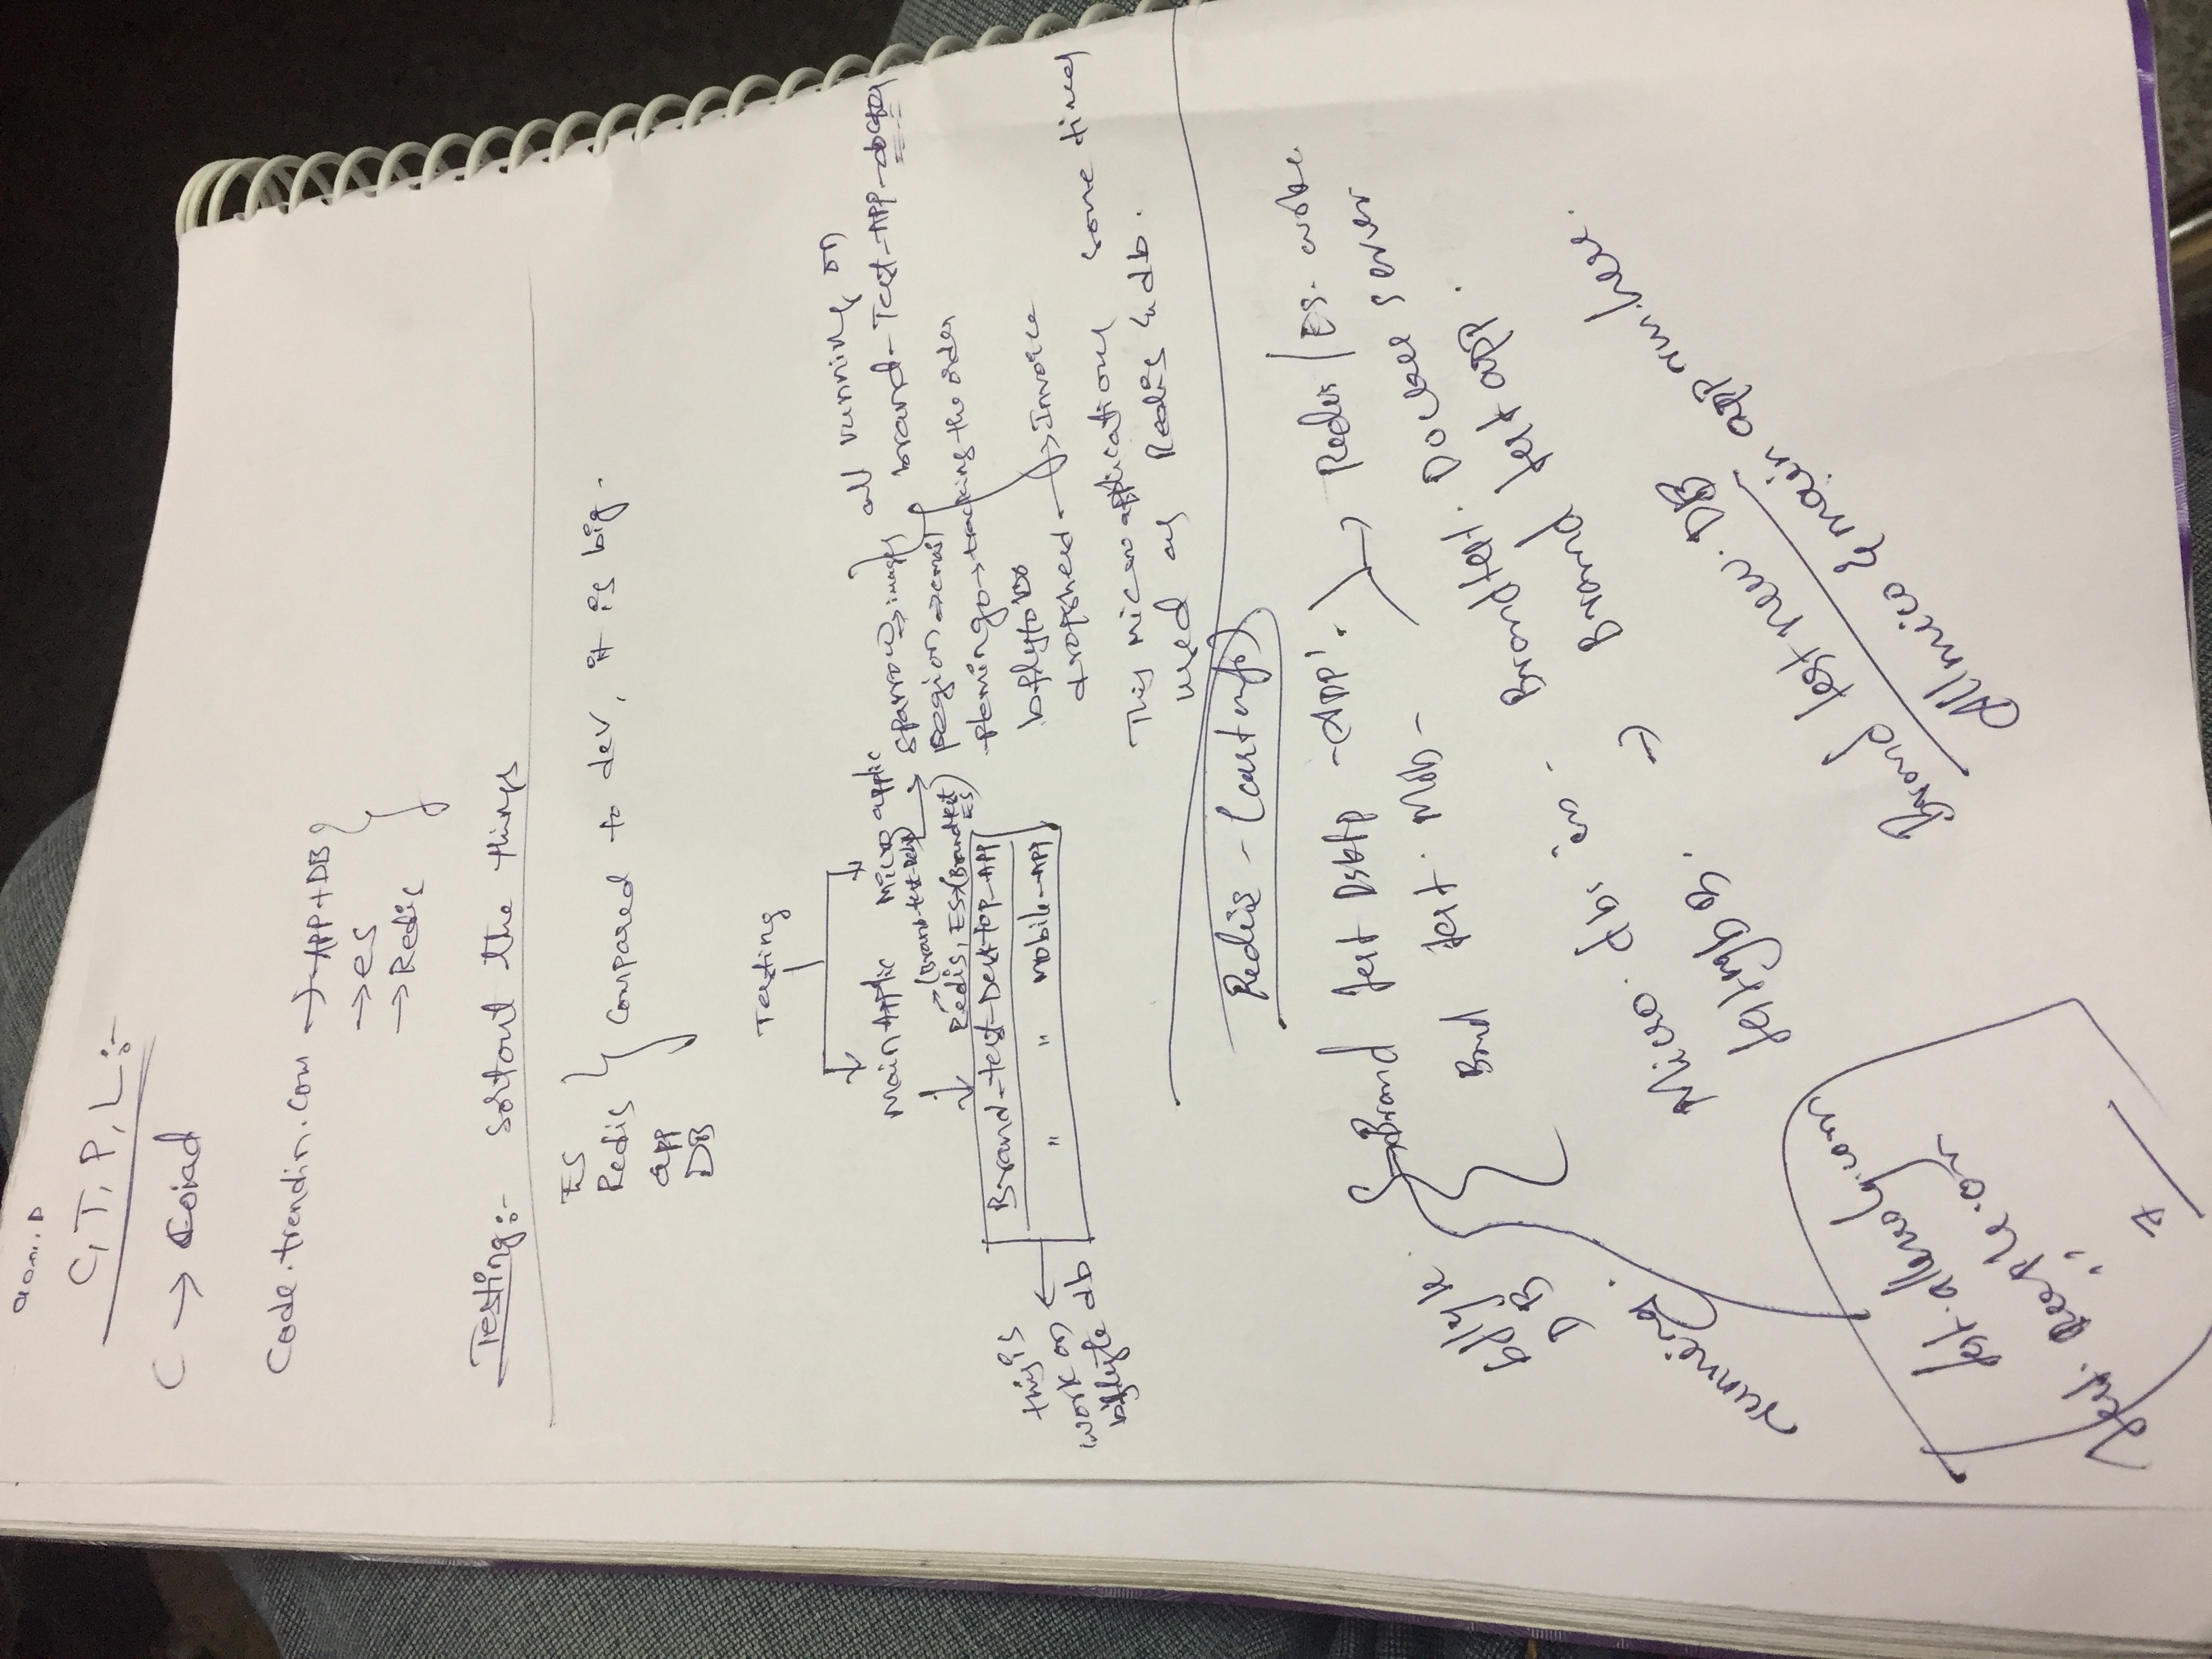 C, T, P, L :-
C → Coiad
Code.trendin.com → APP + DB
→ es
→ Redis
Testing :- Sortout the things
ES
Redis
app
DB
Compared to dev, it is big.
Testing
Main Applic
Micro applic
(Brand-test-Redis)
Redis, ES → (Brandtest ES)
Brand-test-Desktop-APP
" " Mobile-APP
this is
work on
bflyte db
sparrow → images
pegion → email
flemingo → tracking the order
bflyto DB
dropsheed → Invoice
all running on
brand-Test-APP-docker
This micro applications some times
used as Redis & db.
Redis - (cart info)
→ Brand test Dsktp - APP'.
Brnd test. Mob -
→ Redis / ES. woke
bflyte
DB
running.
Micro. dbs in - Brandtest. Docker server
testngDB. → Brand test app.
Brand test new. DB
All mico & main app run. here.
test.allensolly.com
test. People.on
"